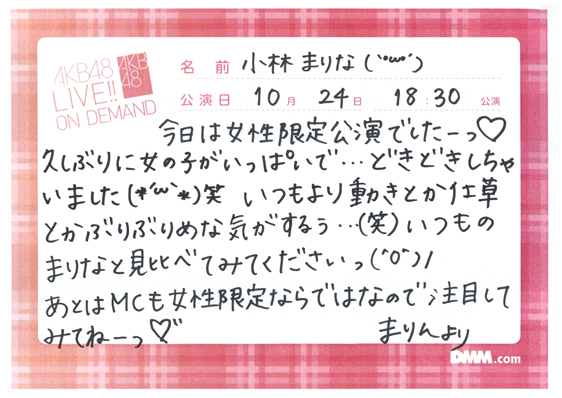 AKB48
LIVE!!
ON DEMAND
AKB
48
名 前 小林 まりな (`･ω･´)
公演日 10月 24日 18:30 公演
今日は女性限定公演でしたーっ♡
久しぶりに女の子がいっぱいで…どきどきしちゃ
いました(*´ω`*)笑 いつもより動きとか仕草
とかぶりぶりめな気がするぅ…(笑)いつもの
まりなと見比べてみてくださいっ(^o^)/
あとはMCも女性限定ならではなので注目して
みてねーっ♡
まりんより
DMM.com